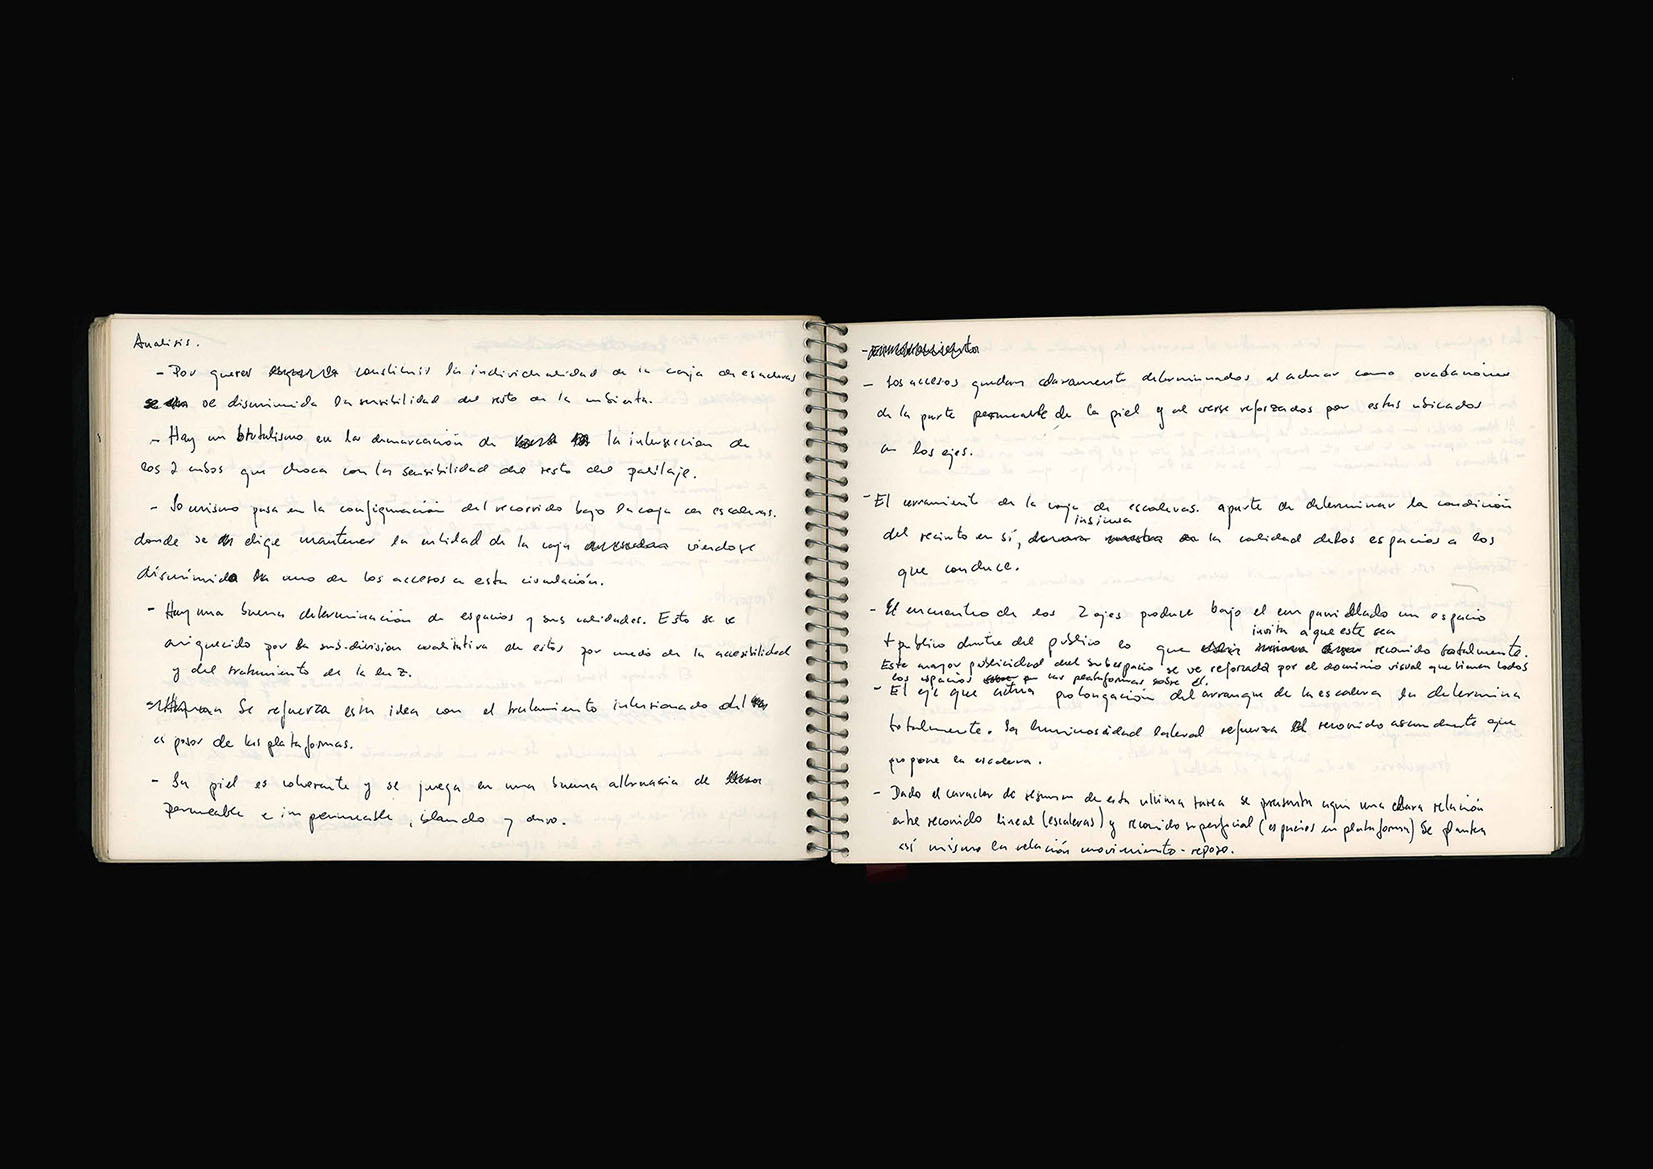 Analisis.
- Por querer construir la individualidad de la caja de escaleras
se ve discriminida la sensibilidad del resto de la
- Hay un brutalismo en la demarcación de la interseccion de
los 2 cubos que choca con la sensibilidad del resto del
- Lo mismo pasa en la configuración del recorrido bajo la caja de escaleras.
donde se elige mantener la entidad de la caja viendose
discriminida uno de los accesos a esta circulación.
- Hay una buena determinación de espacios y sus calidades. Esto se ve
enriquecido por la sub-division cualitativa de estos por medio de la accesibilidad
y del tratamiento de la luz.
- Se refuerza esta idea con el tratamiento intensionado del
espesor de las plataformas.
- La piel es coherente y se juega en una buena alternacia de
permeable e impermeable, blando y duro.
- Los accesos quedan claramente determinados al actuar como
de la parte permeable de la piel y al verse reforzados por estar ubicados
en los ejes.
- El cerramiento de la caja de escaleras. aparte de determinar la condición
insinua
del recinto en sí, la calidad de los espacios a los
que conduce.
- El encuentro de los 2 ejes produce bajo el emparrillado un espacio
invita a que este sea
+ publico dentro del publico lo que recorrido totalmente.
Esta mayor publicidad del subespacio se ve reforzada por el dominio visual que tienen todos
los espacios las plataformas sobre él.
- El eje que actua prolongación del arranque de la escalera la determina
totalmente. La luminosidad lateral refuerza el recorrido ascendente que
propone la escalera.
- Dado el caracter de resumen de esta ultima tarea se presenta aquí una clara relación
entre recorrido lineal (escaleras) y recorrido superficial (espacios en plataforma) Se plantea
así mismo la relación movimiento - reposo.